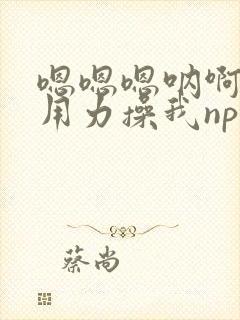 嗯嗯嗯呐啊
用力操我np
蔡尚